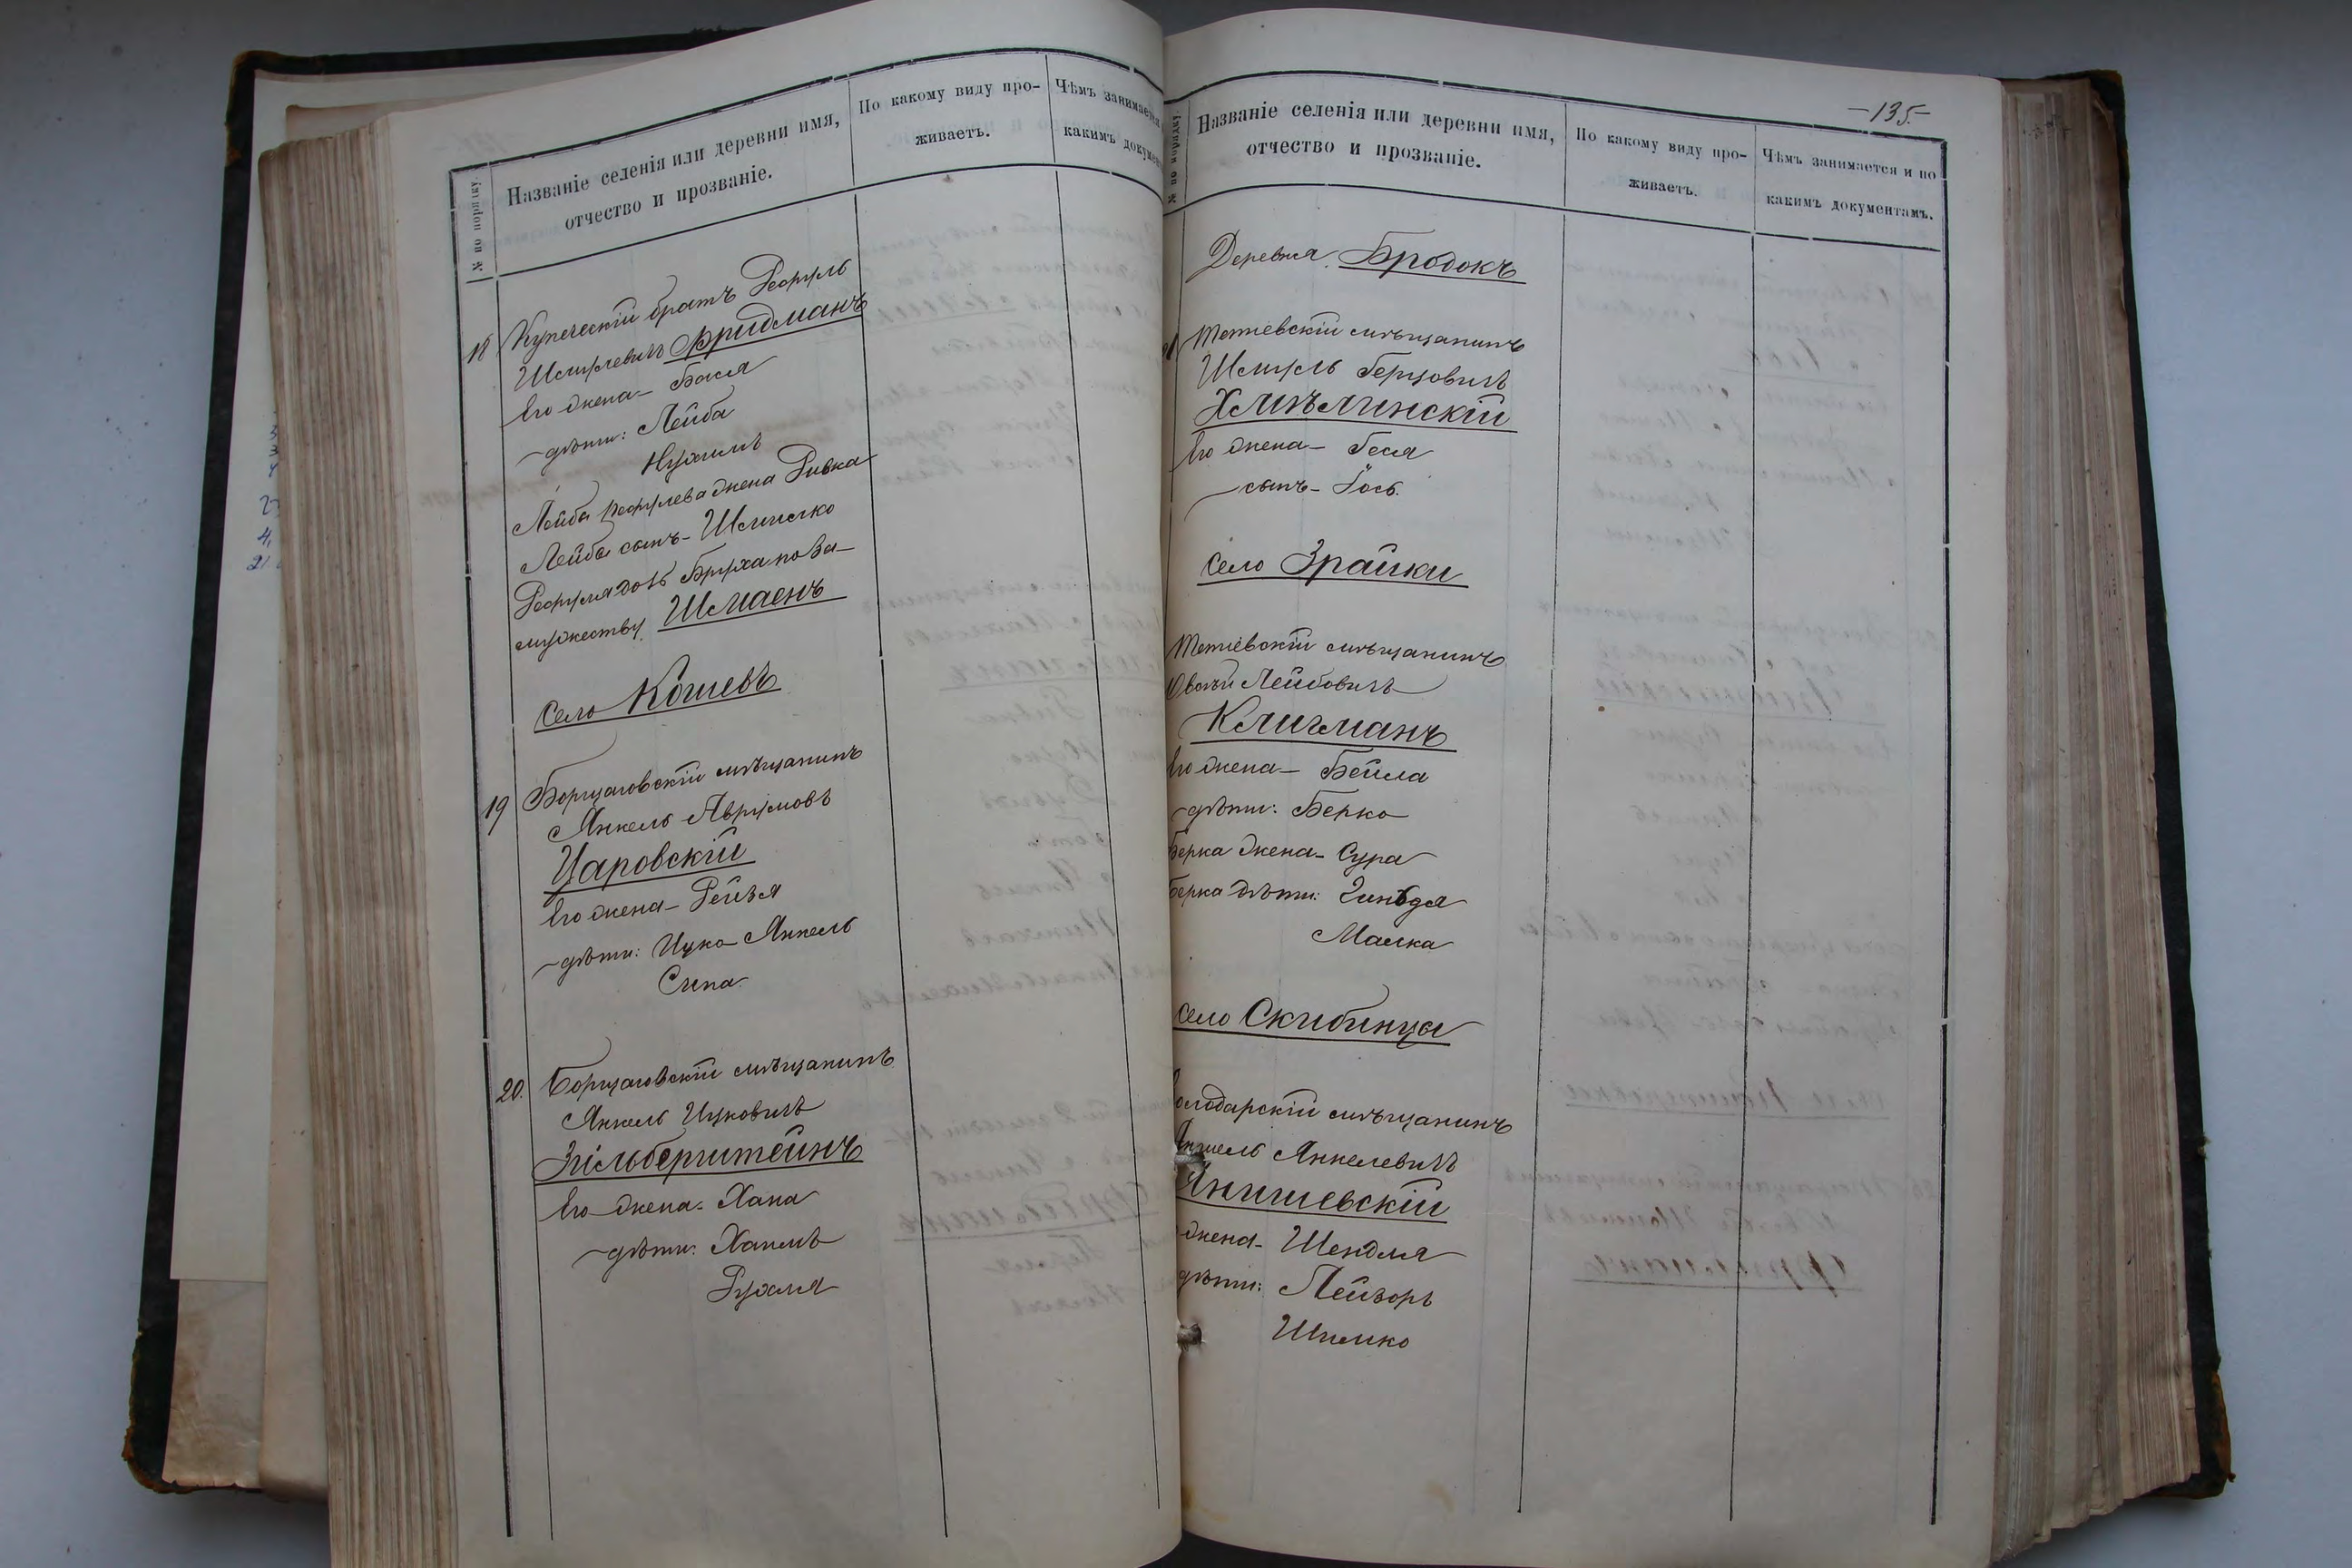 № по порядку
Названіе селенія или деревни имя,
отчество и прозваніе.
По какому виду про-
живаетъ.
Чѣмъ занимается
какимъ докумен
18 Купеческій братъ
Шмулевичъ Фридманъ
Его жена - Бася
дѣти: Лейба
Нухимъ
Лейбы жена Ривка
Лейбы сынъ - Шлиомко
дочь Бруха по за-
мужеству Шмаенъ
Село Кошевъ
19 Борщаговскій мѣщанинъ
Янкель Аврумовъ
Царовскій
Его жена - Рейзя
дѣти: Ицко Янкель
Сипа
20. Борщаговскій мѣщанинъ
Янкель Ицковичъ
Зильберштейнъ
Его жена - Хана
дѣти: Хаимъ
Рухля
-135-
№ по порядку
Названіе селенія или деревни имя,
отчество и прозваніе.
По какому виду про-
живаетъ.
Чѣмъ занимается и по
какимъ документамъ.
Деревня Бродокъ
Тетіевскій мѣщанинъ
Шмуль Берковичъ
Хмѣлинскій
Его жена - Бася
сынъ - Іось
Село Зрайки
Тетіевскій мѣщанинъ
Овшій Лейбовичъ
Клигманъ
Его жена - Бейла
дѣти: Берко
Берка жена - Сура
Берка дѣти:
Малка
Село Скибинцы
олодарскій мѣщанинъ
Янкелевичъ
Янишевскій
жена - Шендля
дѣти: Лейзоръ
Шимко